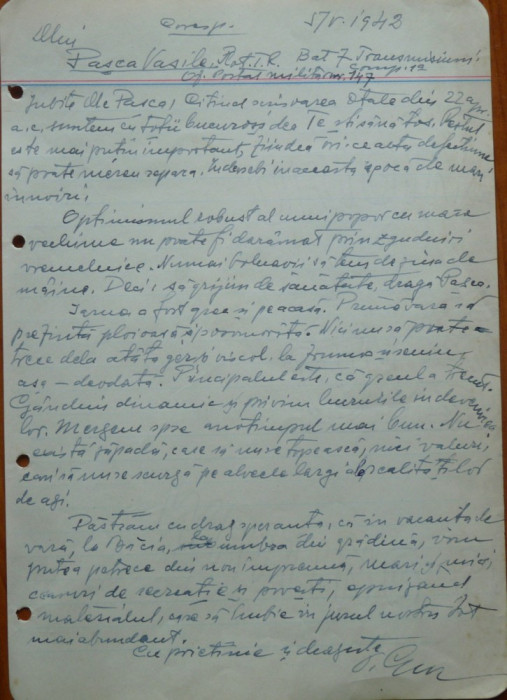 Coresp. 5/V.1942
Dlui
Pașca Vasile. Rot. T.R. Bat 7 Transmisiuni.
Comp. 12
Of. Postal militar nr. 147
Iubite Dle Pașca, Citind scrisoarea Dtale din 22 apr.
a.c. suntem cu toții bucuroși de a Te ști sănătos. Restul
este mai puțin important, fiindcă ori-ce
să poate mereu repara. Îndeosebi în această epocă de mari
înnoiri.
Optimismul robust al unui popor cu mare
vechime nu poate fi dărâmat prin zguduiri
vremelnice. Numai bolnavii să tem de ziua de
mâine. Deci să grijim de sănătate, dragă Pașca.
Iarna a fost grea și pe acasă. Primăvara să
prezintă ploioasă și posomorîtă. Nici nu să poate
trece dela atâta ger și viscol la frumos și senin
așa - deodată. Principalul este, că greul a trecut.
Gândim dinamic și privim lucrurile în devenirea
lor. Mergem spre anotimpul mai bun. Nu
există zăpadă, care să nu se topească, nici valuri,
cari să nu se scurgă pe albiile largi ale realităților
de azi.
Păstrăm cu drag speranța, că în vacanța de
vară, la Dacia, umbra din grădină, vom
putea petrece din nou împreună, mari și mici,
ceasuri de recreație și povești,
materialul, care să îmbie în jurul nostru tot
mai abundant.
Cu prietenie și dragoste